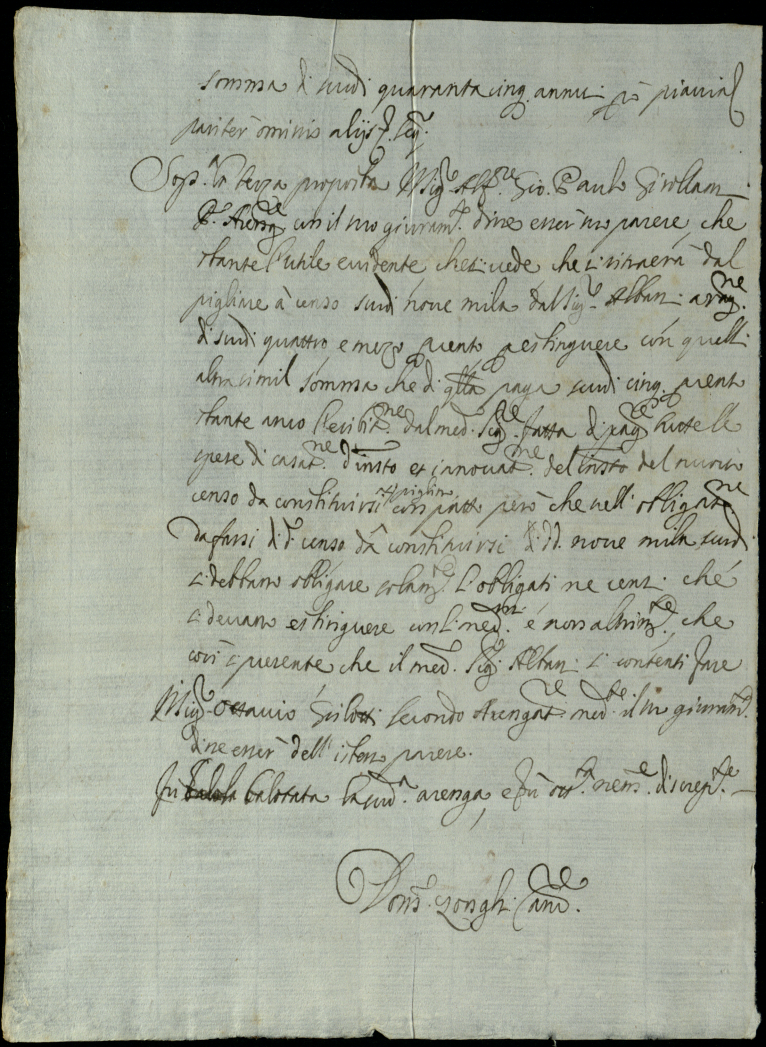 somma di scudi quaranta cinq. annui
pariter omnis aliis
Sop.a la terza proposta Il Sig.r Alf.re Gio. Paulo Girollam
con il suo giuram.to dice esser suo parere che
stante l'utile euidente che si uede che si ritraerà dal
pigliare à censo scudi noue mila dal Sig.r Alban: a rag.ne
di scudi quattro e mezo p cento p estinguere con quelli
altra simil somma che di q.lla paga scudi cinq. p cento
stante anco l'esibit.ne dal med. Sig.re fatta di pag.re tutte le
spese di casat.ne d'insto et innouat.ne del insto del nuouo
censo da constituirsi con patto però che nell' obligat.ne
da farsi di d.o censo da constituirsi di dd. noue mila scudi
si debbano obligare solam.te l'obligati ne censi che
si deuano estinguere con li med.mi e non altrim.te, che
così si presente che il med. Sig. Alban: si contenti fare
Il Sig.r Ottauio Gilotti secondo Arengat.re med.te il suo giuram.to
dice esser dell' istesso parere.
fù balotata la sud.a arenga, e fù ott.a nem.e discrep.te
Longhi Canc.re